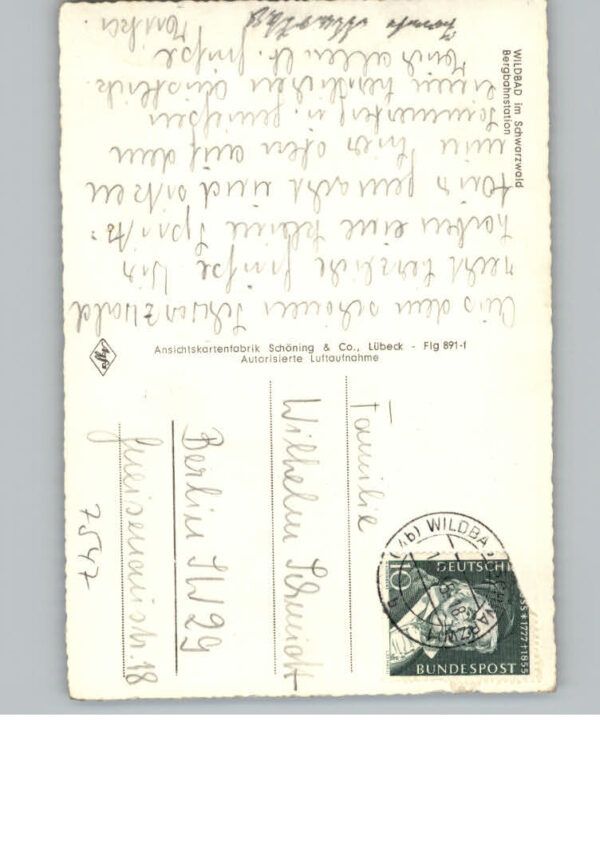 WILDBAD im Schwarzwald
Bergbahnstation
Aus dem schönen Schwarzwald
recht herzliche Grüße. Wir
haben eine kleine Spritz-
tour gemacht und sitzen
nun hier oben auf dem
Sommerberg u. genießen
einen herrlichen Ausblick.
Euch allen lb. Grüße
Ansichtskartenfabrik Schöning & Co., Lübeck - Flg 891-f
Autorisierte Luftaufnahme
Agfa
Familie
Wilhelm Schmidt
Berlin SW 29
Gneisenaustr. 18
7547
(14b) WILDBAD
DEUTSCHE
BUNDESPOST
10
1777 † 1855